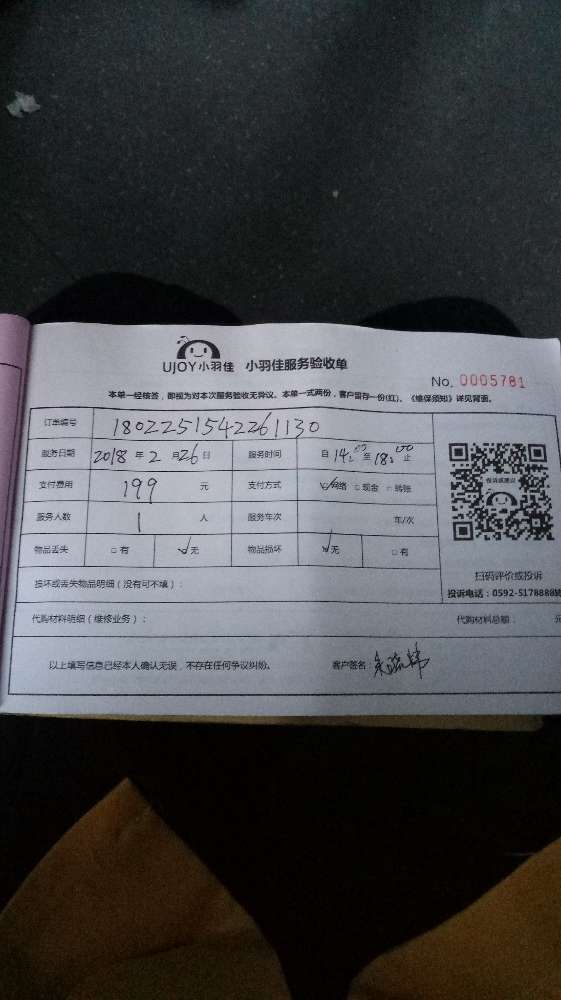 UJOY小羽佳 小羽佳服务验收单
No. 0005781
本单一经核签，即视为对本次服务验收无异议。本单一式两份，客户留存一份(红)。《维保须知》详见背面。
订单编号 1802251542261130
服务日期 2018年2月26日 服务时间 自14:00至18:00止
支付费用 199元 支付方式 ☑网络 □现金 □转账
服务人数 1人 服务车次 车/次
物品丢失 □有 ☑无 物品损坏 ☑无 □有
损坏或丢失物品明细（没有可不填）：
投诉或建议
扫码评价或投诉
投诉电话：0592-5178888转
代购材料明细（维修业务）： 代购材料总额： 元
以上填写信息已经本人确认无误，不存在任何争议纠纷。 客户签名